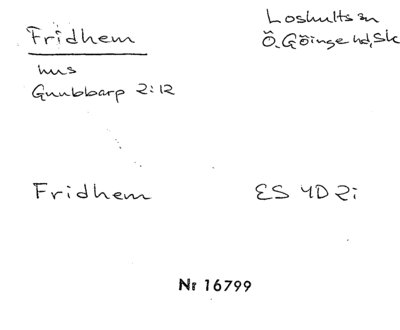 Fridhem
Loshults sn
Ö. Göinge hd, Sk
hus
Gnubbarp 2:12
Fridhem
ES 4D 2i
Nr 16799